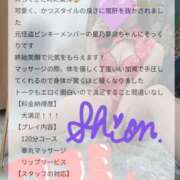 可愛く、かつスタイルの良さに度肝を抜かされました
元怪盗ピンキーメンバーの星乃夢亜ちゃんにそっくりです
終始笑顔で元気も貰えます！
マッサージの際、体を優しく丁度いい加減で手圧してくれるので身体が驚くほど軽くなりました
トークもエロく面白いので満足すること間違いなし
【料金納得度】
大満足！！！
【プレイ内容】
120分コース
睾丸マッサージ
リップサービス
【スタッフの対応】
Shion.